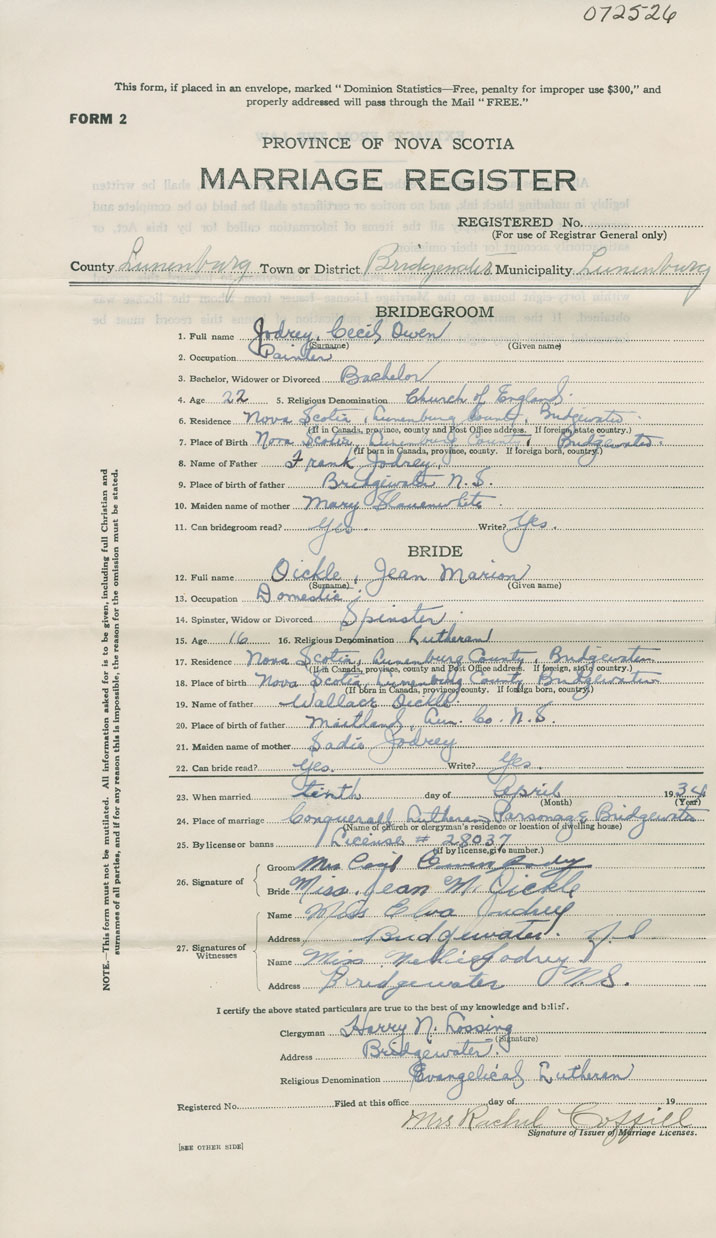 072526
This form, if placed in an envelope, marked "Dominion Statistics—Free, penalty for improper use $300," and
properly addressed will pass through the Mail "FREE."
FORM 2
PROVINCE OF NOVA SCOTIA
MARRIAGE REGISTER
REGISTERED No.
(For use of Registrar General only)
County Lunenburg Town or District Bridgewater Municipality Lunenburg
BRIDEGROOM
1. Full name Jodrey, Cecil Owen
(Surname) (Given name)
2. Occupation Painter
3. Bachelor, Widower or Divorced Bachelor
4. Age 22 5. Religious Denomination Church of England.
6. Residence Nova Scotia, Lunenburg County, Bridgewater.
(If in Canada, province, county and Post Office address. If foreign, state country.)
7. Place of Birth Nova Scotia, Lunenburg County, Bridgewater.
(If born in Canada, province, county. If foreign born, country)
8. Name of Father Frank Jodrey.
9. Place of birth of father Bridgewater N.S.
10. Maiden name of mother Mary Slauenwhite
11. Can bridegroom read? Yes. Write? Yes.
BRIDE
12. Full name Oickle, Jean Marion
(Surname) (Given name)
13. Occupation Domestic
14. Spinster, Widow or Divorced Spinster
15. Age 16 16. Religious Denomination Lutheran
17. Residence Nova Scotia, Lunenburg County, Bridgewater
(If in Canada, province, county and Post Office address. If foreign, state country.)
18. Place of birth Nova Scotia, Lunenburg County Bridgewater
(If born in Canada, province, county. If foreign born, country)
19. Name of father Wallace Oickle.
20. Place of birth of father Maitland, Lun. Co. N.S.
21. Maiden name of mother Sadie Jodrey
22. Can bride read? Yes. Write? Yes.
23. When married tenth day of April 1934
(Month) (Year)
24. Place of marriage Conquerall Lutheran Parsonage Bridgewater
(Name of church or clergyman's residence or location of dwelling house)
25. By license or banns License # 28037
(If by license, give number.)
26. Signature of
Groom Mrs Cecil Owen Jodrey
Bride Miss. Jean M. Oickle
27. Signatures of Witnesses
Name Miss Elva Jodrey
Address Bridgewater. N.S
Name Miss Nellie Jodrey
Address Bridgewater N.S.
I certify the above stated particulars are true to the best of my knowledge and belief.
Clergyman Harry N. Lossing
(Signature)
Address Bridgewater.
Religious Denomination Evangelical Lutheran
Registered No. Filed at this office day of 19
Mrs Rachel
Signature of Issuer of Marriage Licenses.
[SEE OTHER SIDE]
NOTE.—This form must not be mutilated. All information asked for is to be given, including full Christian and
surnames of all parties, and if for any reason this is impossible, the reason for the omission must be stated.